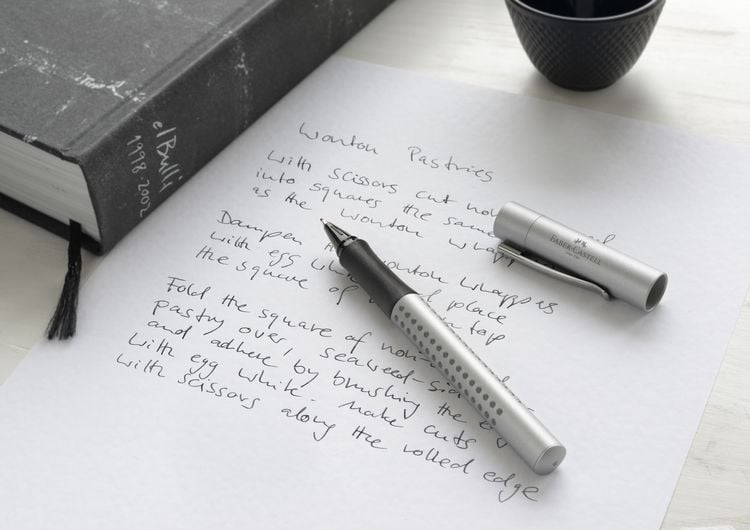 elBulli
1998-2002
Wonton Pastries
With scissors cut
into squares the same
as the wonton
Dampen wonton wrappers
with egg place
the square of on top
Fold the square of non-
pastry over, seaweed-
and adhere by brushing the
with egg white. Make cuts
with scissors along the rolled edge
FABER-CASTELL